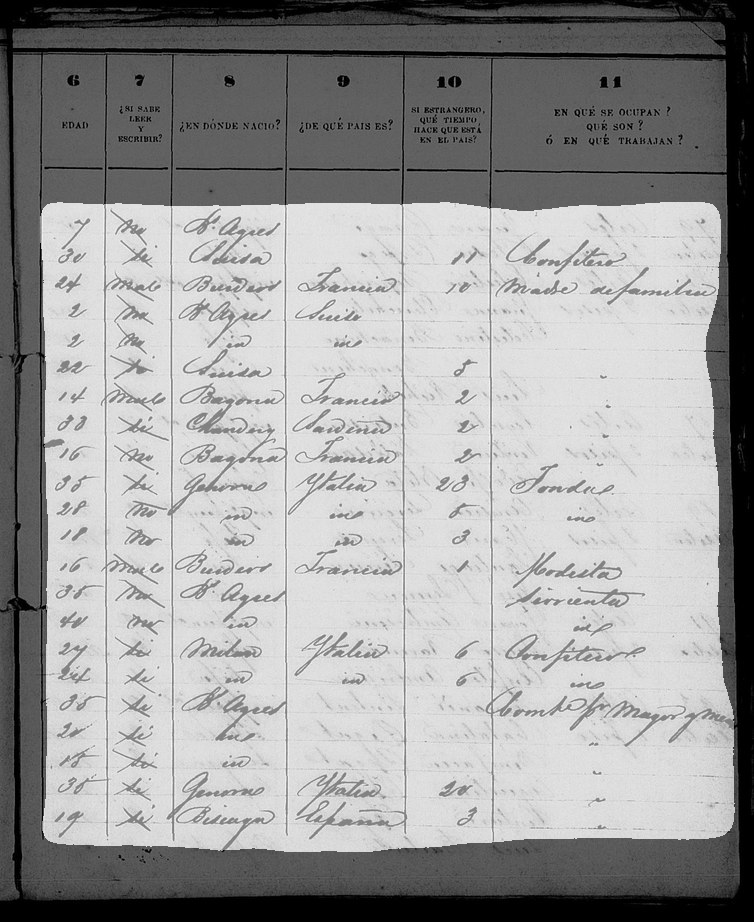 6 7 8 9 10 11
EDAD ¿SI SABE LEER Y ESCRIBIR? ¿EN DÓNDE NACIO? ¿DE QUÉ PAIS ES? SI ESTRANGERO, QUÉ TIEMPO HACE QUE ESTÁ EN EL PAIS? EN QUÉ SE OCUPAN? QUÉ SON? Ó EN QUÉ TRABAJAN?
7 no Bs Ayres
30 si Suisa 11 Confitero
24 malo Burdeos Francia 10 Madre de familia
2 no Bs Ayres Suiso
2 no in in
22 si Suisa 5 "
14 malo Bayona Francia 2 "
33 si Sardeña 2 "
16 no Bayona Francia 2 "
35 si Genova Ytalia 23 Fonda
28 no in in 5 in
18 no in in 3
16 malo Burdeos Francia 1 Modista
35 no Bs Ayres Sirvienta
40 no in in
27 si Milan Ytalia 6 Confitero
24 si in in 6 in
35 si Bs Ayres Comte pr Mayor y men
20 si in "
18 si in "
35 si Genova Ytalia 20 "
19 si Biscaya España 3 "